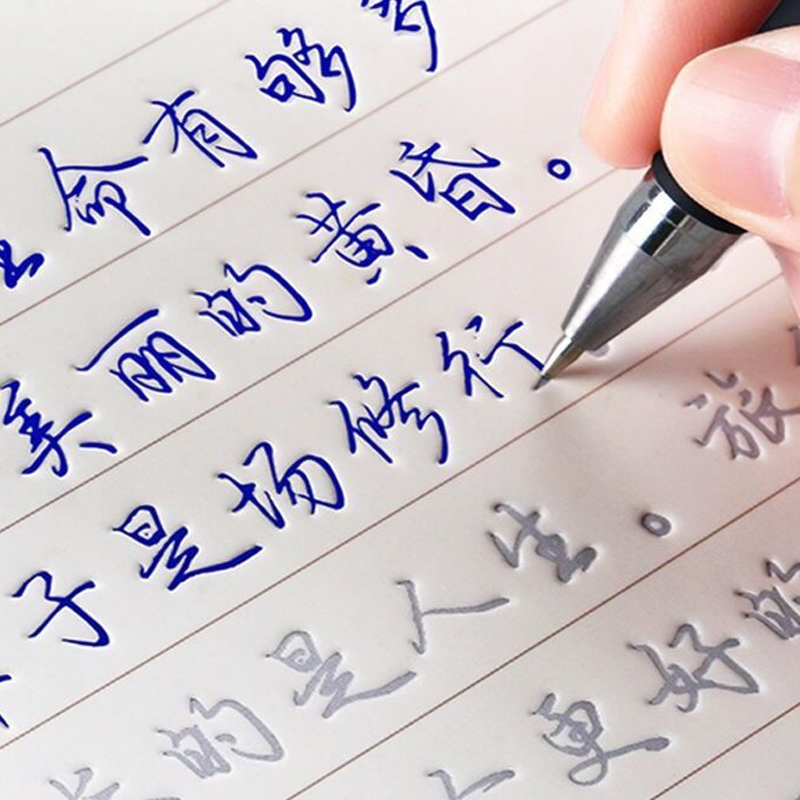 命有够多
美丽的黄昏。
子是场修行
的是人生。旅
更好的